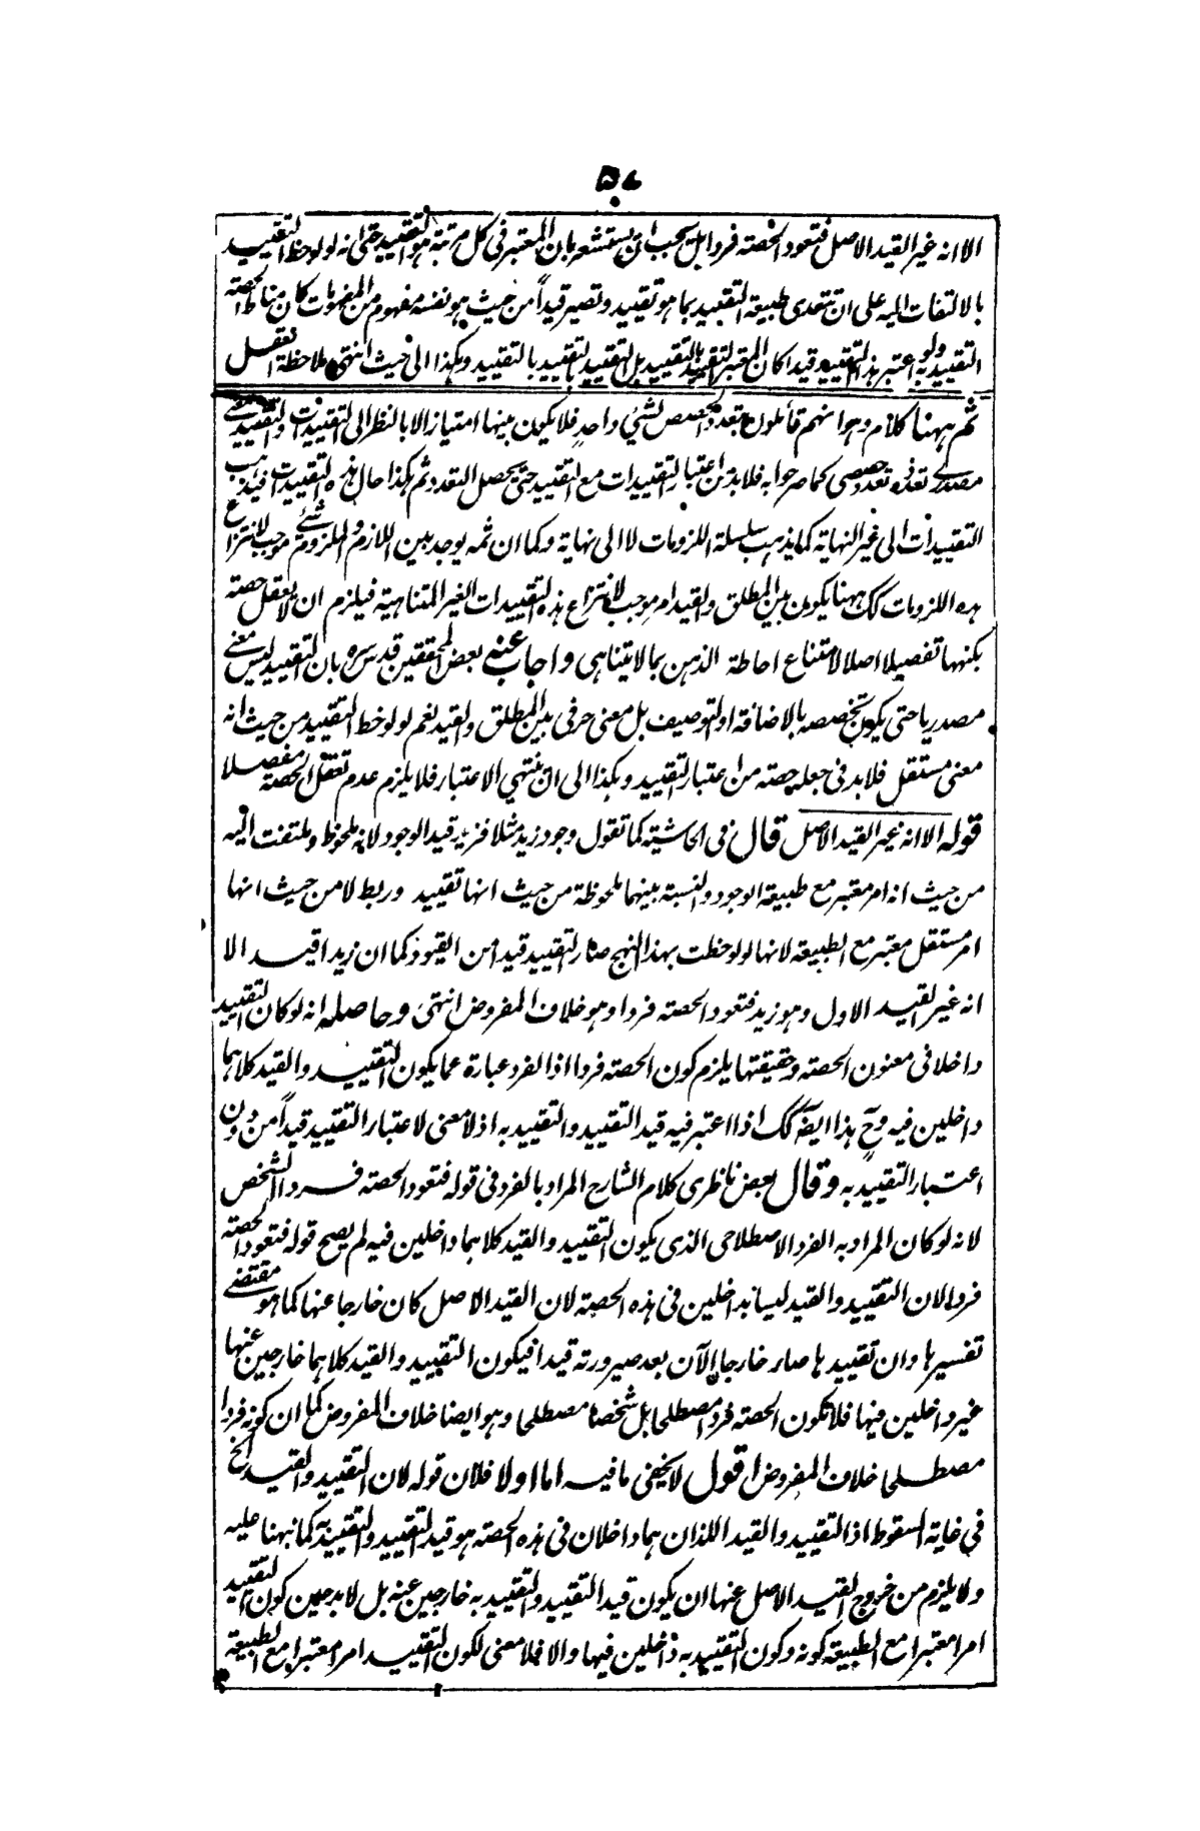 ٥٧
الا انه غير القيد الاصل فتعود الحصته فردا بل يجب ان يستشعر بان المعتبر فى كل مرتبة هو التقييد حتى انه لو لوحظ التقييد
بالالتفات اليه على ان تتعدى طبيعة التقييد بما هو تقييد وتصير قيداً من حيث هو نفسه مفهوم من المفهومات كان مناط الحصته
التقييد به ولو اعتبر هذا التقييد قيدا كان المعتبر التقييد بالتقييد بل التقييد بالتقييد بالتقييد وهكذا الى حيث انتهى ملاحظة العقل
ثم ههنا كلام وهو انهم قائلون بتعدد الحصص لشئ واحد فلا يكون بينها امتياز الا بالنظر الى التقييدات والتقييد معنى
مصدرى تعدده تعدد حصصى كما صرحوا به فلابد من اعتبار التقييدات مع التقييد حتى يحصل التعدد ثم هكذا حال هذه التقييدات فيذهب
التقييدات الى غير النهاية كما يذهب سلسلة اللزومات لا الى نهاية وكما ان ثمه يوجد بين اللازم والملزوم شئ موجب لانتزاع
هده اللزومات كك ههنا يكون بين المطلق والقيد امر موجب لانتزاع هذه التقييدات الغير المتناهية فيلزم ان لا يعقل حصته
بكنهها تفصيلا اصلا لامتناع احاطة الذهن بما لا يتناهى واجاب عنه بعض المحققين قدس سره بان التقييد ليس معنى
مصدريا حتى يكون تخصصه بالاضافة او التوصيف بل معنى حرفى بين المطلق والقيد نعم لو لوحظ التقييد من حيث انه
معنى مستقل فلابد فى جعله حصته من اعتبار التقييد وهكذا الى ان ينتهي الاعتبار فلا يلزم عدم تعقل الحصته مفصلا
قوله الا انه غير القيد الاصل قال فى الحاشية كما تقول وجود زيد مثلا فزيد قيد الوجود لانه ملحوظ وملتفت اليه
من حيث انه امر معتبر مع طبيعة الوجود والنسبة بينهما ملحوظة من حيث انها تقييد وربط لا من حيث انها
امر مستقل معتبر مع الطبيعة لانها لو لوحظت بهذا النهج صار التقييد قيدا من القيود كما ان زيدا قيد الا
انه غير القيد الاول وهو زيد فتعود الحصته فردا وهو خلاف المفروض انتهى وحاصله انه لو كان التقييد
داخلا فى معنون الحصته وحقيقتها يلزم كون الحصته فردا اذ الفرد عبارة عما يكون التقييد والقيد كلاهما
داخلين فيه وح هذا ايضا كك اذا اعتبر فيه قيد التقييد والتقييد به اذ لا معنى لاعتبار التقييد قيداً من دون
اعتبار التقييد به وقال بعض ناظرى كلام الشارح المراد بالفرد فى قوله فتعود الحصته فردا الشخص
لانه لو كان المراد به الفرد الاصطلاحى الذى يكون التقييد والقيد كلاهما داخلين فيه لم يصح قوله فتعود الحصته
فردا لان التقييد والقيد ليسا بداخلين فى هذه الحصته لان القيد الاصل كان خارجا عنها كما هو مقتضى
تفسيرها وان تقييدها صار خارجا الآن بعد صيرورته قيدا فيكون التقييد والقيد كلاهما خارجين عنها
غير داخلين فيها فلا تكون الحصته فردا مصطلحا بل شخصا مصطلحا وهو ايضا خلاف المفروض كما ان كونه فردا
مصطلحا خلاف المفروض اقول لا يخفى ما فيه اما اولا فلان قوله لان التقييد والقيد الخ
فى غاية السقوط اذ التقييد والقيد اللذان هما داخلان فى هذه الحصته هو قيد التقييد والتقييد به كما نبهنا عليه
ولا يلزم من خروج القيد الاصل عنها ان يكون قيد التقييد والتقييد به خارجين عنه بل لابد حين كون التقييد
امرا معتبرا مع الطبيعة كونه وكون التقييد به داخلين فيها والا فلا معنى لكون التقييد امرا معتبرا مع الطبيعة